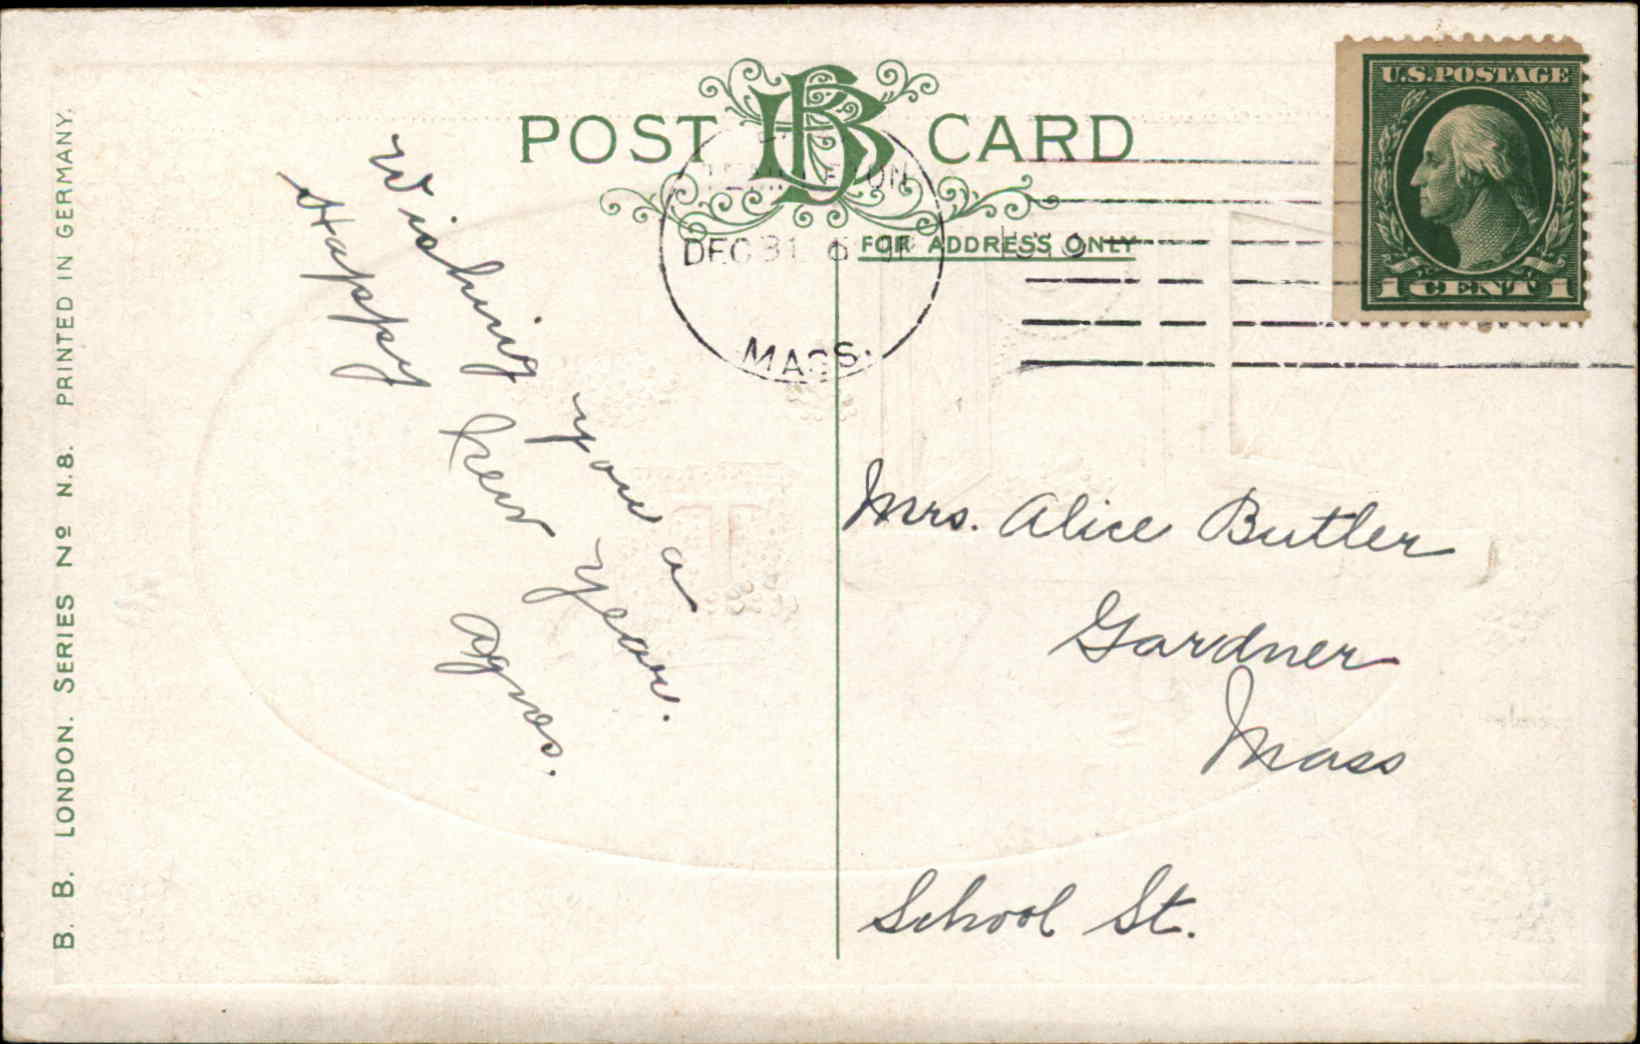 POST CARD
FOR ADDRESS ONLY
U.S. POSTAGE
1 CENT 1
DEC 31
MASS.
Wishing you a
Happy New Year.
Agnes.
Mrs. Alice Butler
Gardner
Mass
School St.
B. B. LONDON. SERIES Nº N.8. PRINTED IN GERMANY.